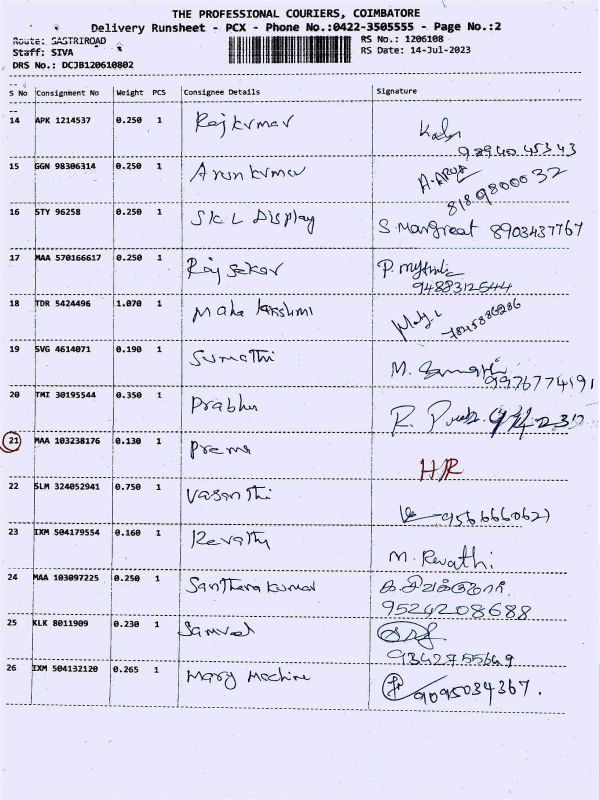 THE PROFESSIONAL COURIERS, COIMBATORE
Delivery Runsheet - PCX - Phone No.:0422-3505555 - Page No.:2
Route: SASTRIROAD RS No.: 1206108
Staff: SIVA RS Date: 14-Jul-2023
DRS No.: DCJB120610802
S No Consignment No Weight PCS Consignee Details Signature
14 APK 1214537 0.250 1 Rajkumar
98940 45343
15 GGN 98306314 0.250 1 Arunkumar A. ARUN
818.9800032
16 STY 96258 0.250 1 SKL Display S. Margreat 8903437767
17 MAA 570166617 0.250 1 Rajsekar P.
9488312644
18 TDR 5424496 1.070 1 Maha lakshmi
7845886286
19 SVG 4614071 0.190 1 Sumathi M.
9976774191
20 TMI 30195544 0.350 1 Prabhu R.
21 MAA 103238176 0.130 1 Prema H/R
22 SLM 324052941 0.750 1 Vasanthi 9566660627
23 IXM 504179554 0.160 1 Revathy M. Revathi
24 MAA 103097225 0.250 1 Santhana kumar க.சிவக்குமார்.
9524208688
25 KLK 8011909 0.230 1 Samvel
9342755649
26 IXM 504132120 0.265 1 Mary Machine 9095034367.